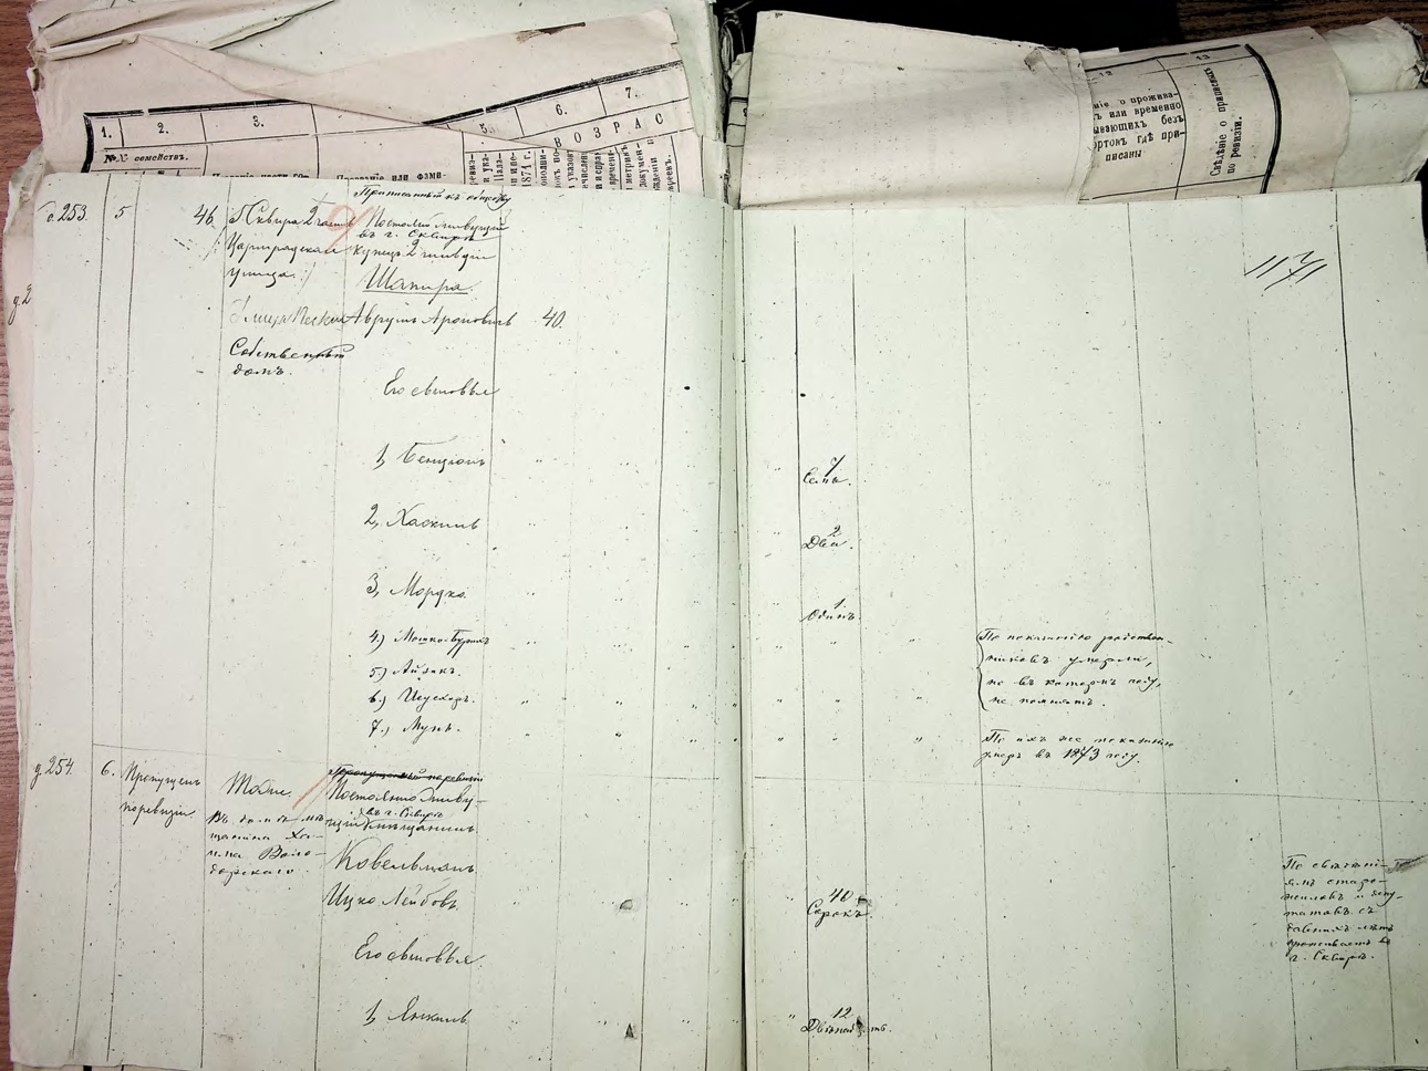 1.
2.
3.
5.
6.
7.
ВОЗРАС
№№ семействъ.
Прозваніе или фами-
1871 г.
12
13
ніе о прожива-
ъ или временно
ывающихъ безъ
ортовъ гдѣ при-
писаны
Свѣдѣніе о припискахъ
по ревизіи.
Приписанный къ обществу
253.
5
46
Г. Сквира 2 часть
Постоянно живущій
въ г. Сквирѣ
купецъ 2 гильдіи
улица.
Шапира.
Аврумъ Ароновичъ
40.
Собственный
домъ.
Его сыновья
1, Бенціонъ
7
Семь.
2, Хаскиль
2
Два.
3, Мордко.
1
Одинъ.
4.) Мошко-Бурихъ
5.) Айзикъ.
6.)
7.)
По показанію родствен-
никовъ умерли,
но въ которомъ году,
не помнятъ.
По ихъ же показанію
умеръ въ 1873 году.
254.
6.
Пропущенъ
по ревизіи.
Тоже.
Въ домѣ мѣ-
щанина Ха-
има Воло-
дарскаго.
Пропущенный по ревизіи
Постоянно живу-
въ г. Сквирѣ
щій мѣщанинъ.
Ковельманъ
Ицко Лейбовъ.
40
Сорокъ.
Его сыновья
1, Янкель
12
Двѣнадцать.
По свѣдѣні-
ямъ старо-
жиловъ и депу-
татовъ съ
давнихъ лѣтъ
проживаетъ въ
г. Сквирѣ.